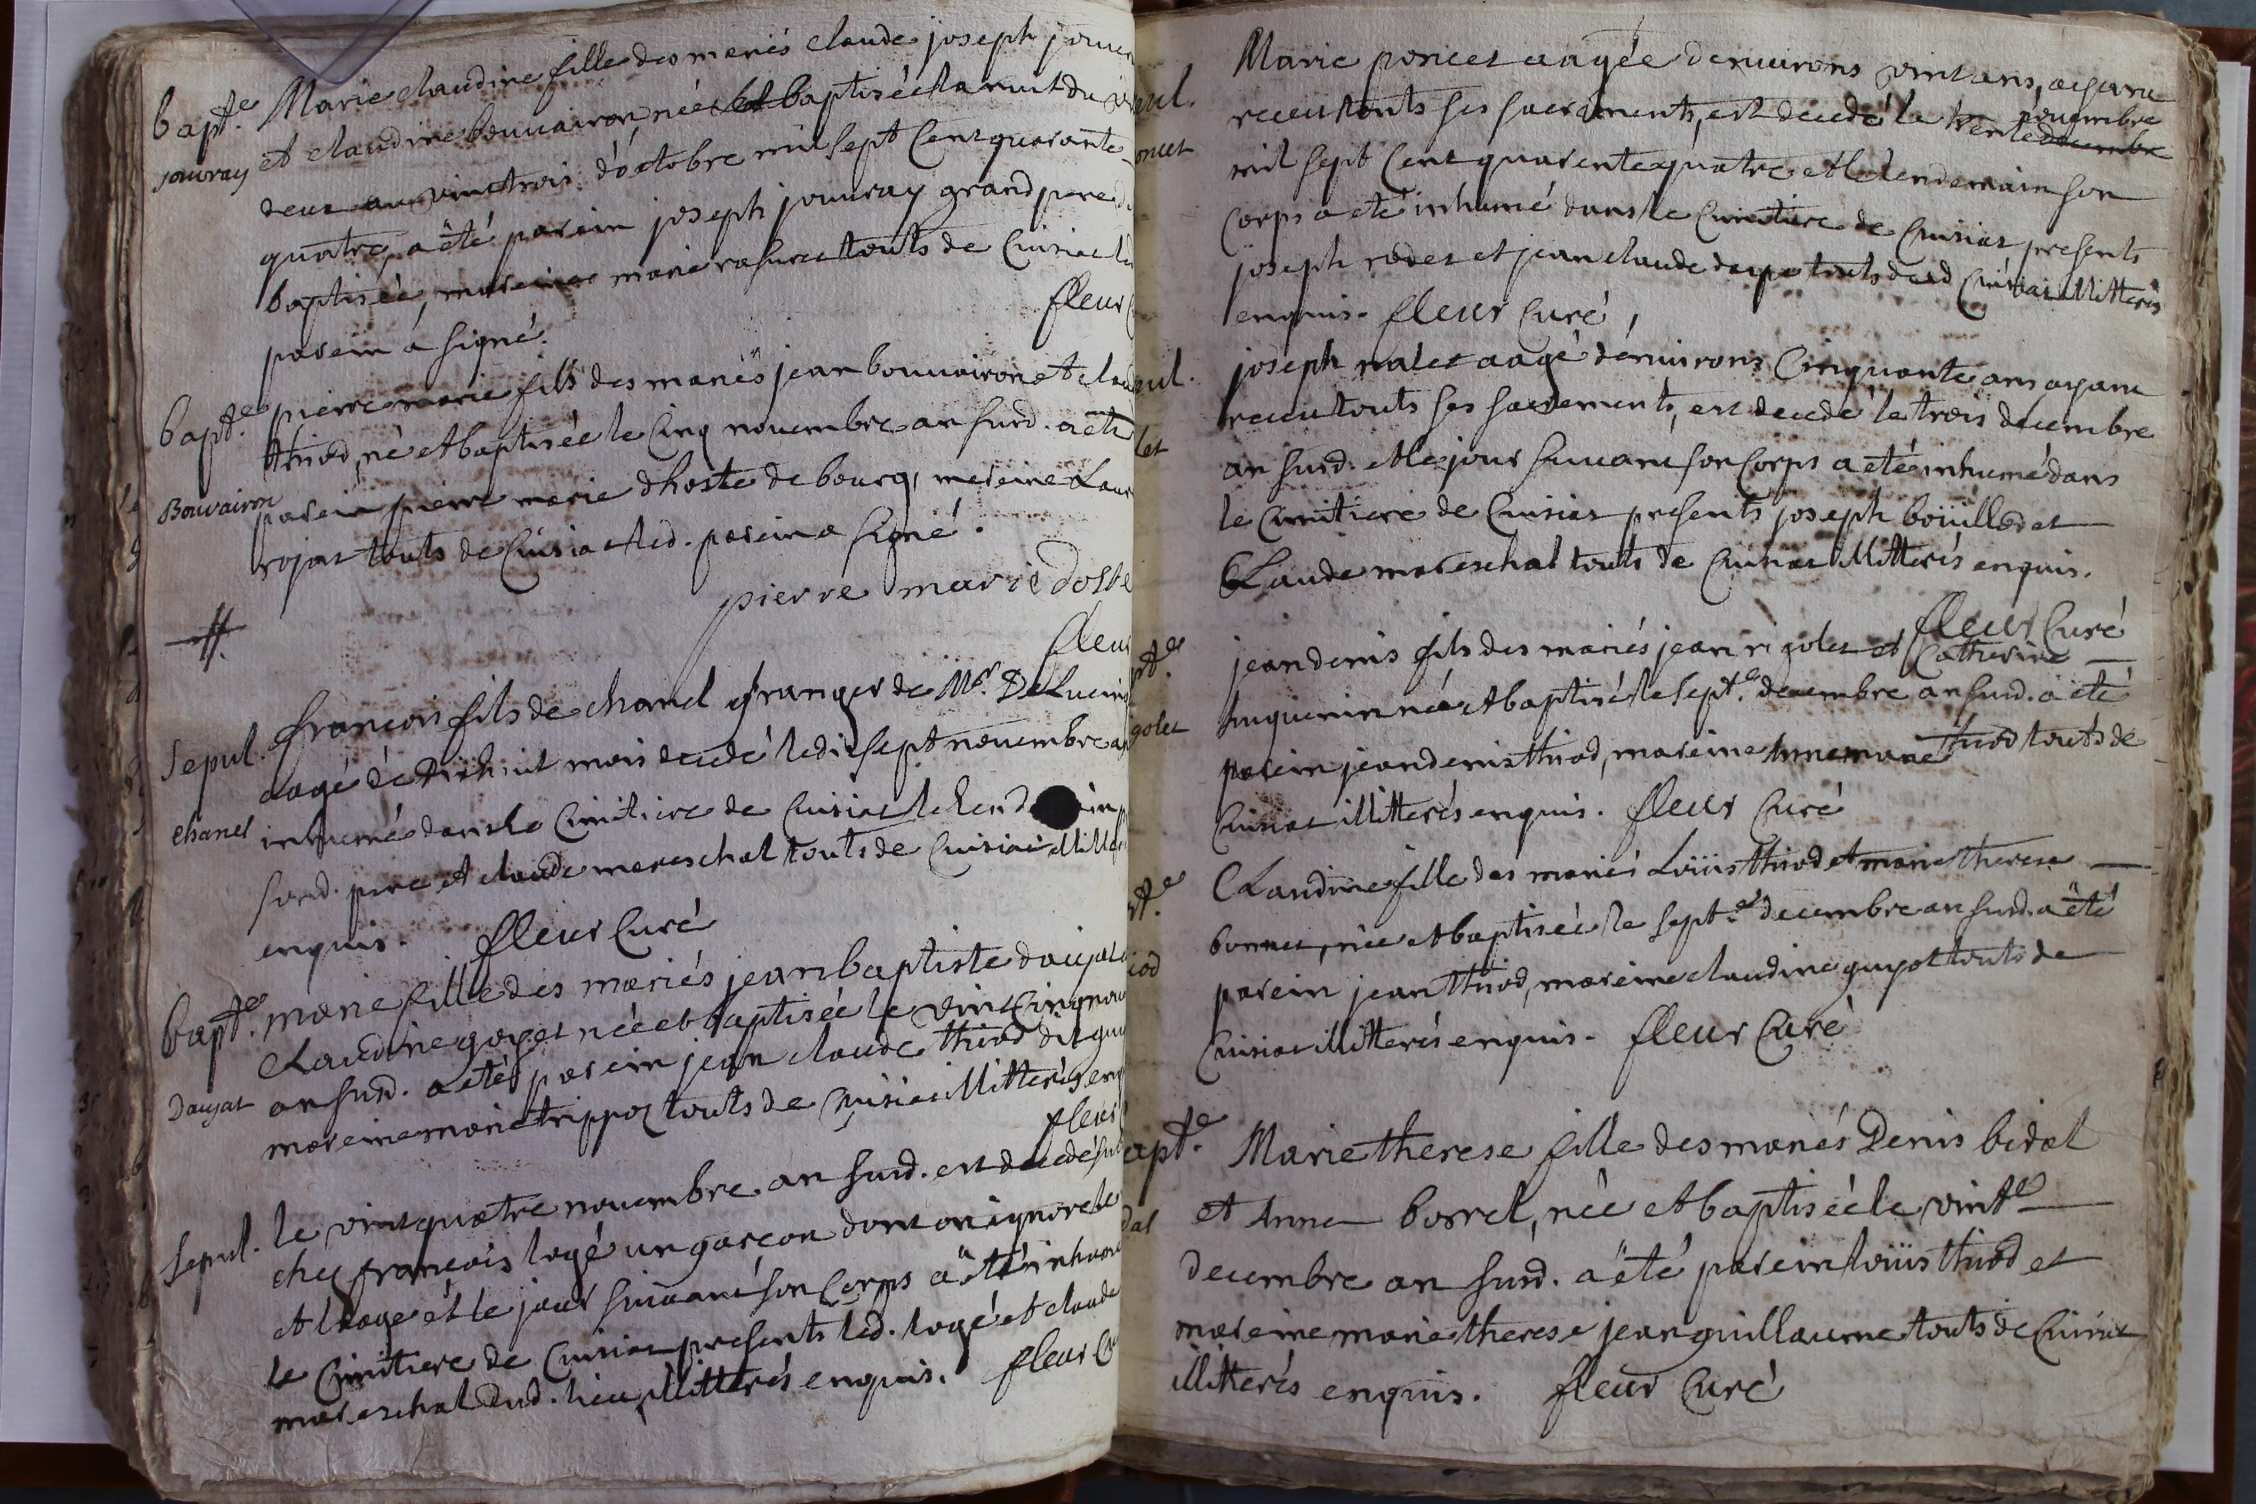 bapt.e Marie claudine fille des mariés claude joseph
jouvray et claudine bouvairon née et baptisée la nuit du
deux au vinctrois d'octobre mil sept cent quarante
quatre, a été parein joseph jouvray grand pere
baptisée, mareine marie touts de Cuisiat
parein a signé. fleur
bapt.e pierre marie fils des mariés jean bouvairon et
thiod, né et baptisée le cinq novembre an susd. a été
Bouvairon parein pierre marie dhoste de bourg, mareine
rojat touts de Cuisiat led. parein a signé.
pierre marie doste
fleur
sepul. francois fils de chanel granger de Mr. De
aagé de dixhuit mois decedé le dix sept novembre
chanel inhumé dans le Cimitiere de Cuisiat le
susd. pere et claude mareschal touts de Cuisiat
enquis. fleur Curé
bapt.e marie fille des mariés jean baptiste daujat
Claudine goyet née et baptisée le vint cinq
Daujat an susd. a été parein jean claude thiod dit
mareine marie trippoz touts de Cuisiat illitterés
fleur
sepul. le vint quatre novembre an susd. est decedé
chez francois logé un garcon dont on ignore le
et l'aage et le jour suivant son corps a été
le Cimitiere de Cuisiat presents led. logé et claude
mareschal dud. lieu, illitterés enquis. fleur
Marie poncet aagée d'environs vint ans, ayant
receu touts ses sacrements, est decedé le trente decembre novembre
mil sept cent quarente quatre et le lendemain son
corps a eté inhumé dans le Cimitiere de Cuisiat presents
joseph rodet et jean claude touts dud Cuisiat illitterés
enquis. fleur Curé,
joseph malet aagé d'environs Cinquante ans ayant
receu touts ses sacrements, est decedé le trois decembre
an susd. et le jour suivant son corps a eté inhumé dans
le Cimitiere de Cuisiat presents joseph bouillod et
Claude mareschal touts de Cuisiat illitterés enquis.
fleur Curé
jean denis fils des mariés jean rigolet et Catherine
huguenin né et baptisé le sept.e decembre an susd. a été
parein jean denis thiod, mareine Anne marie thiod touts de
Cuisiat illitterés enquis. fleur Curé
Claudine fille des mariés Loüis thiod et marie therese
bonnet, née et baptisée le sept.e decembre an susd. a été
parein jean thiod, mareine claudine guyot touts de
Cuisiat illitterés enquis. fleur Curé
apt.e Marie therese fille des mariés Denis bidal
et Anne borrel, née et baptisée le vint.e
decembre an susd. a été parein loüis thiod et
mareine marie therese jean guillaume touts de Cuisiat
illitterés enquis. fleur Curé